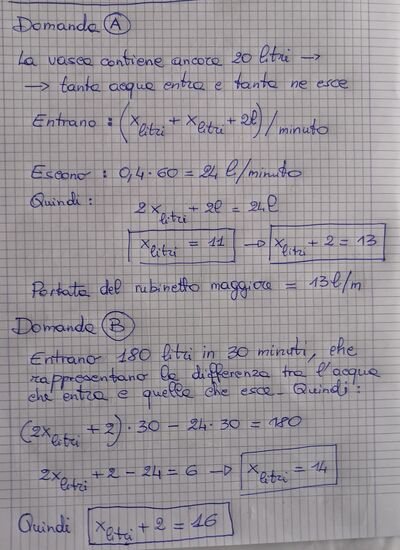 Domanda A
La vasca contiene ancora 20 litri →
→ tanta acqua entra e tanta ne esce
Entrano : (x litri + x litri + 2l) / minuto
Escono : 0,4 · 60 = 24 l/minuto
Quindi : 2x litri + 2l = 24l
x litri = 11 → x litri + 2 = 13
Portata del rubinetto maggiore = 13 l/m
Domanda B
Entrano 180 litri in 30 minuti, che
rappresentano la differenza tra l'acqua
che entra e quella che esce. Quindi :
(2x litri + 2) · 30 – 24 · 30 = 180
2x litri + 2 – 24 = 6 → x litri = 14
Quindi x litri + 2 = 16